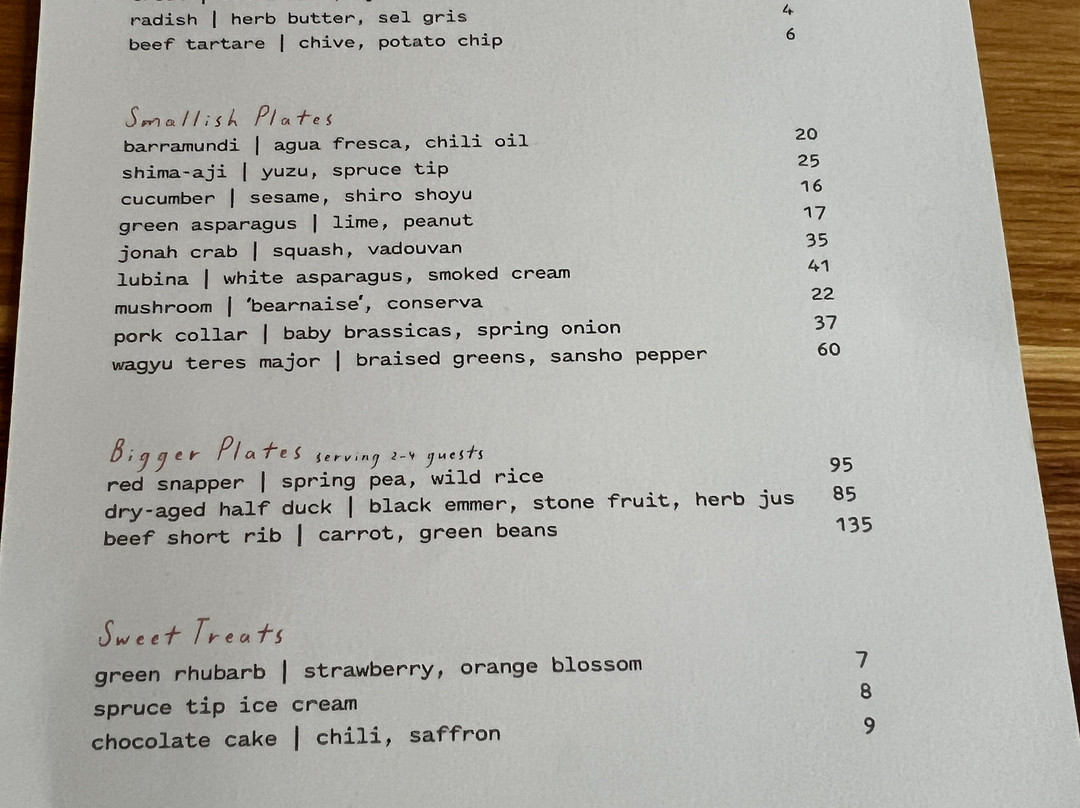 radish | herb butter, sel gris 4
beef tartare | chive, potato chip 6
Smallish Plates
barramundi | agua fresca, chili oil 20
shima-aji | yuzu, spruce tip 25
cucumber | sesame, shiro shoyu 16
green asparagus | lime, peanut 17
jonah crab | squash, vadouvan 35
lubina | white asparagus, smoked cream 41
mushroom | 'bearnaise', conserva 22
pork collar | baby brassicas, spring onion 37
wagyu teres major | braised greens, sansho pepper 60
Bigger Plates serving 2-4 guests
red snapper | spring pea, wild rice 95
dry-aged half duck | black emmer, stone fruit, herb jus 85
beef short rib | carrot, green beans 135
Sweet Treats
green rhubarb | strawberry, orange blossom 7
spruce tip ice cream 8
chocolate cake | chili, saffron 9